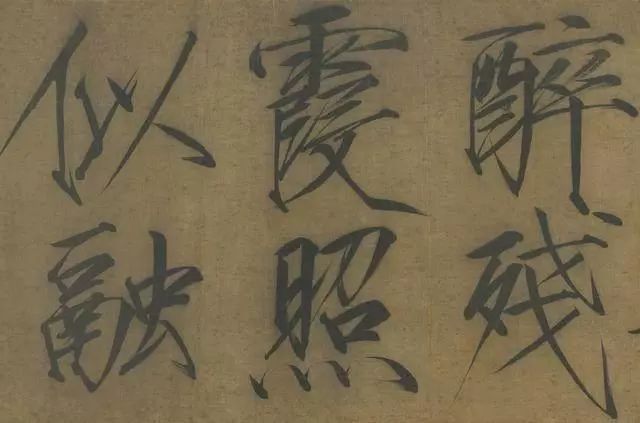 醉残
霞照
似融